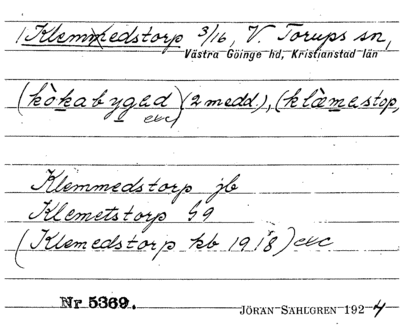 Klemmedstorp 3/16, V. Torups sn,
Västra Göinge hd, Kristianstad län
(kòkabygəd) (2 medd.), (klèməstop,
evc)
Klemmedstorp jb
Klemetstorp G9
(Klemedstorp kb 1918) evc
Nr 5369.
JÖRAN SAHLGREN 1924